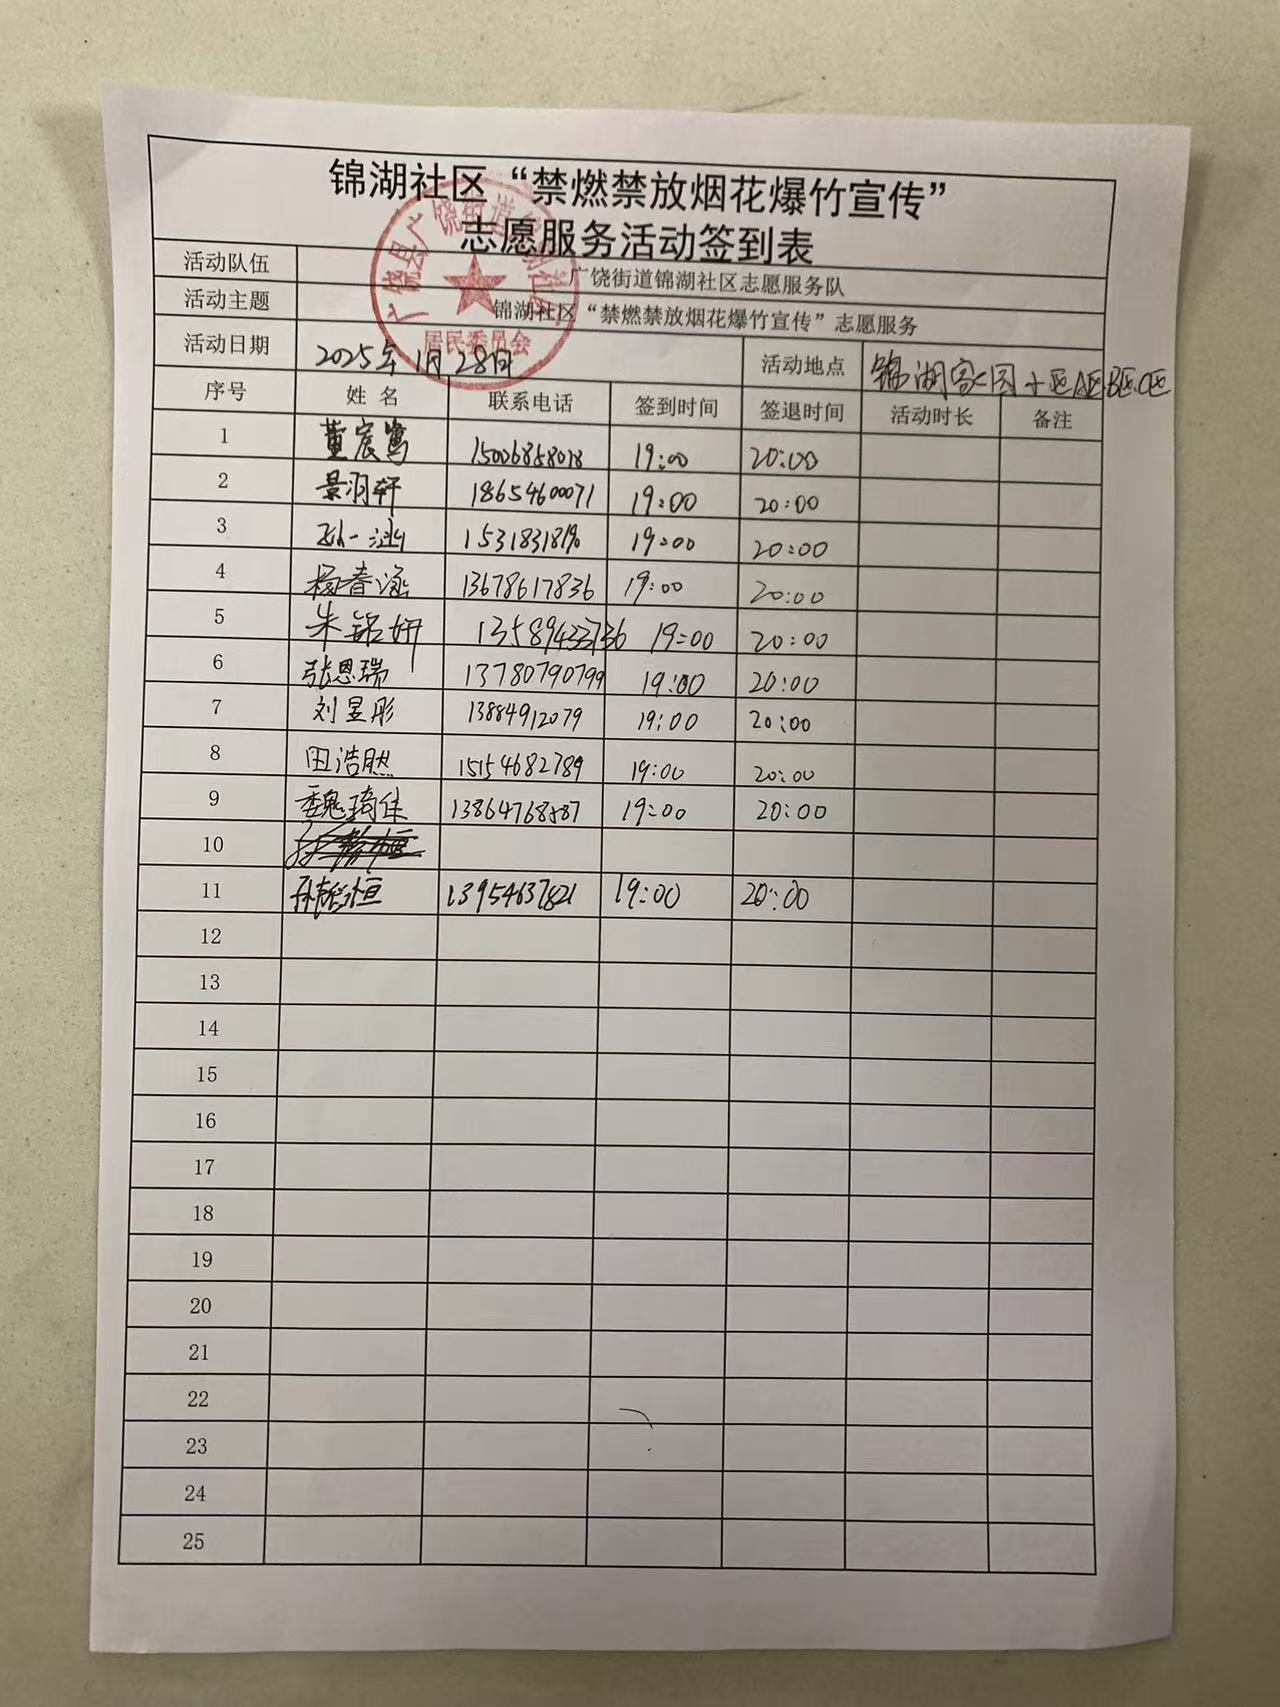 锦湖社区“禁燃禁放烟花爆竹宣传”
志愿服务活动签到表
广饶县广饶街道锦湖社区
居民委员会
活动队伍 广饶街道锦湖社区志愿服务队
活动主题 锦湖社区“禁燃禁放烟花爆竹宣传”志愿服务
活动日期 2025年1月28日 活动地点 锦湖家园小区A区.B区.C区
序号 姓 名 联系电话 签到时间 签退时间 活动时长 备注
1 董宸 15006858018 19:00 20:00
2 景羽轩 18654600071 19:00 20:00
3 孙一 19:00 20:00
4 杨春涵 13678617836 19:00 20:00
5 朱铭妍 13589433736 19:00 20:00
6 张恩瑞 13780790799 19:00 20:00
7 刘昱彤 13884912079 19:00 20:00
8 田浩然 15154682789 19:00 20:00
9 魏琦佳 13864768587 19:00 20:00
10
11 恒 13954637821 19:00 20:00
12
13
14
15
16
17
18
19
20
21
22
23
24
25